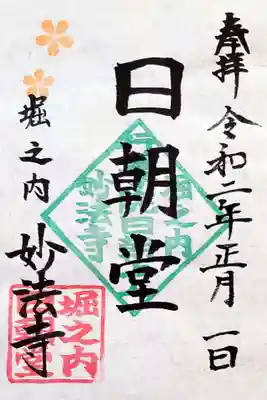 奉拝 令和二年正月一日
日朝堂
堀之内 妙法寺
堀之内
妙法寺
堀之内